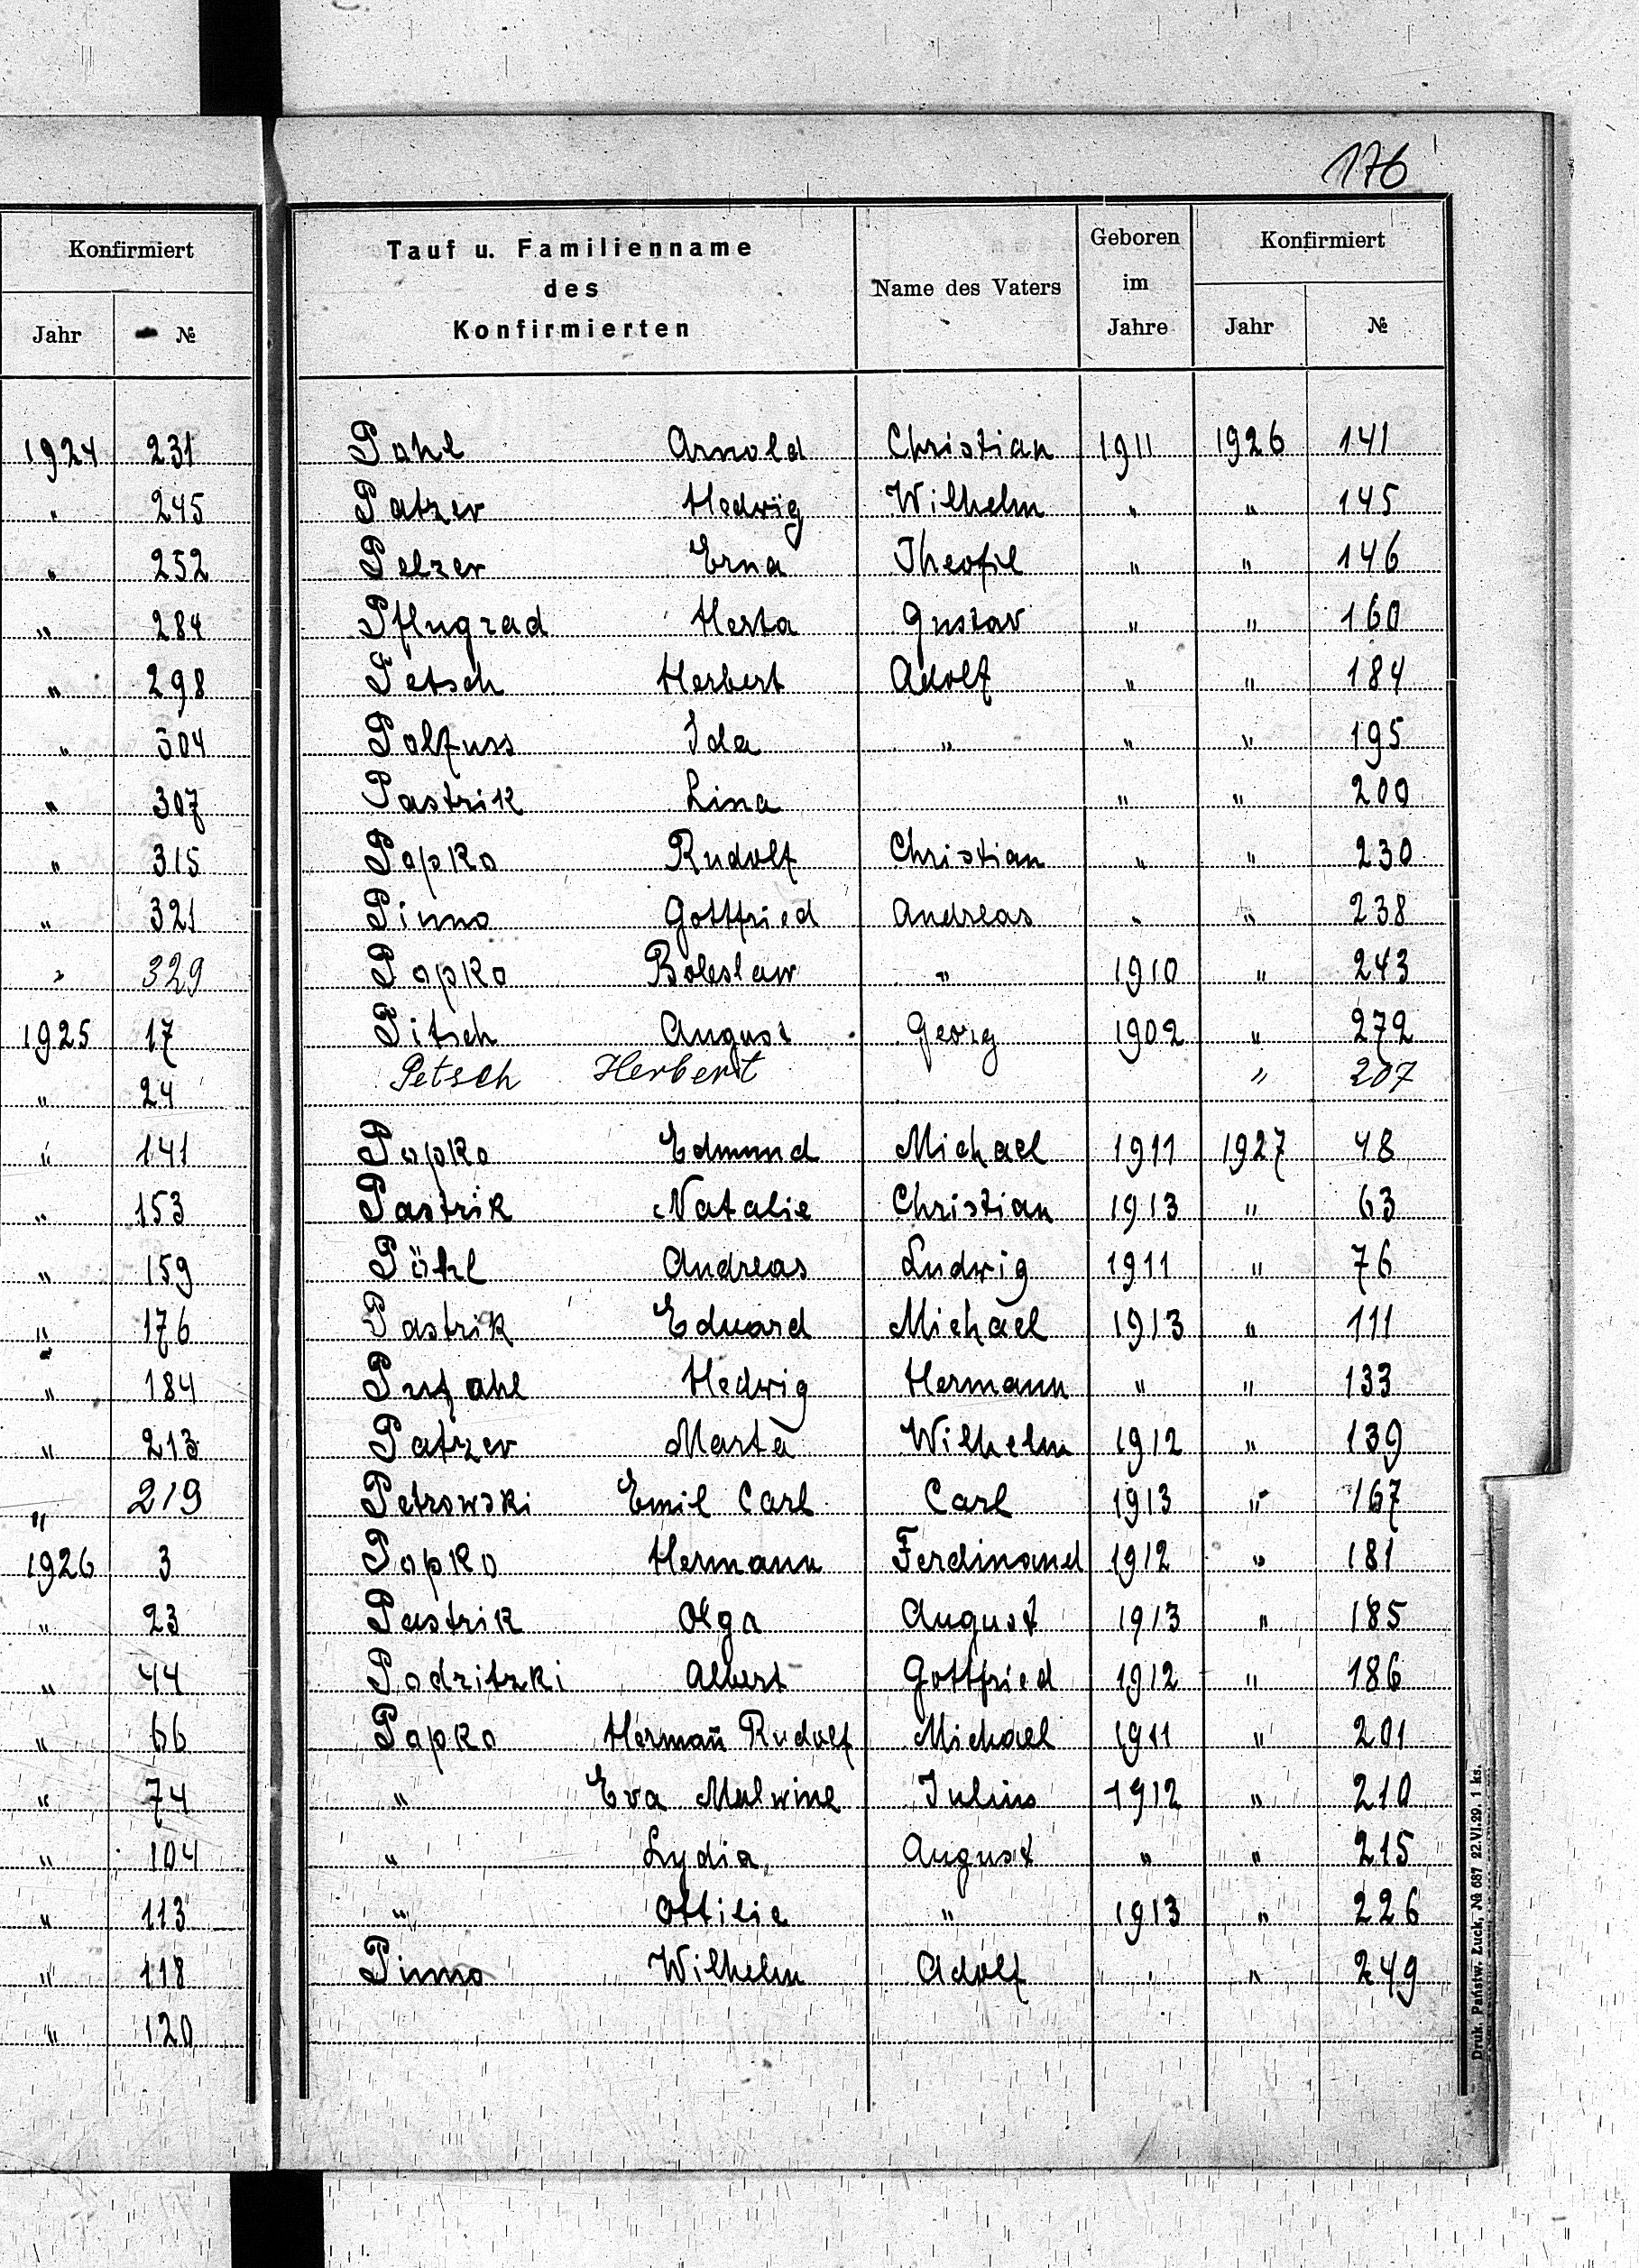 176
Konfirmiert
Jahr № 
1924 231
" 245
" 252
" 284
" 298
" 304
" 307
" 315
" 321
" 329
1925 17
" 24
" 141
" 153
" 159
" 176
" 184
" 213
" 219
1926 3
" 23
" 44
" 66
" 74
" 104
" 113
" 118
" 120
Tauf u. Familienname des Konfirmierten Name des Vaters Geboren im Jahre Konfirmiert
Jahr №
Pohl Arnold Christian 1911 1926 141
Patzer Hedwig Wilhelm " " 145
Pelzer Erna Theofil " " 146
Pflugrad Herta Gustav " " 160
Petsch Herbert Adolf " " 184
Polfuss Ida " " " 195
Pastrik Lina " " 200
Popko Rudolf Christian " " 230
Pinno Gottfried Andreas " " 238
Popko Boleslaw " 1910 " 243
Pitsch August Georg 1902 " 272
Petsch Herbert " 207
Popko Edmund Michael 1911 1927 48
Pastrik Natalie Christian 1913 " 63
Pöhl Andreas Ludwig 1911 " 76
Pastrik Eduard Michael 1913 " 111
Pufahl Hedwig Hermann " " 133
Patzer Marta Wilhelm 1912 " 139
Petrowski Emil Carl Carl 1913 " 167
Popko Hermann Ferdinand 1912 " 181
Pastrik Olga August 1913 " 185
Podritzki Albert Gottfried 1912 " 186
Popko Herman̄ Rudolf Michael 1911 " 201
" Eva Malwine Julius 1912 " 210
" Lydia August " " 215
" Ottilie " 1913 " 226
Pinno Wilhelm Adolf " " 249
Druk. Państw. Łuck, № 687 22.VI.29. 1 ks.